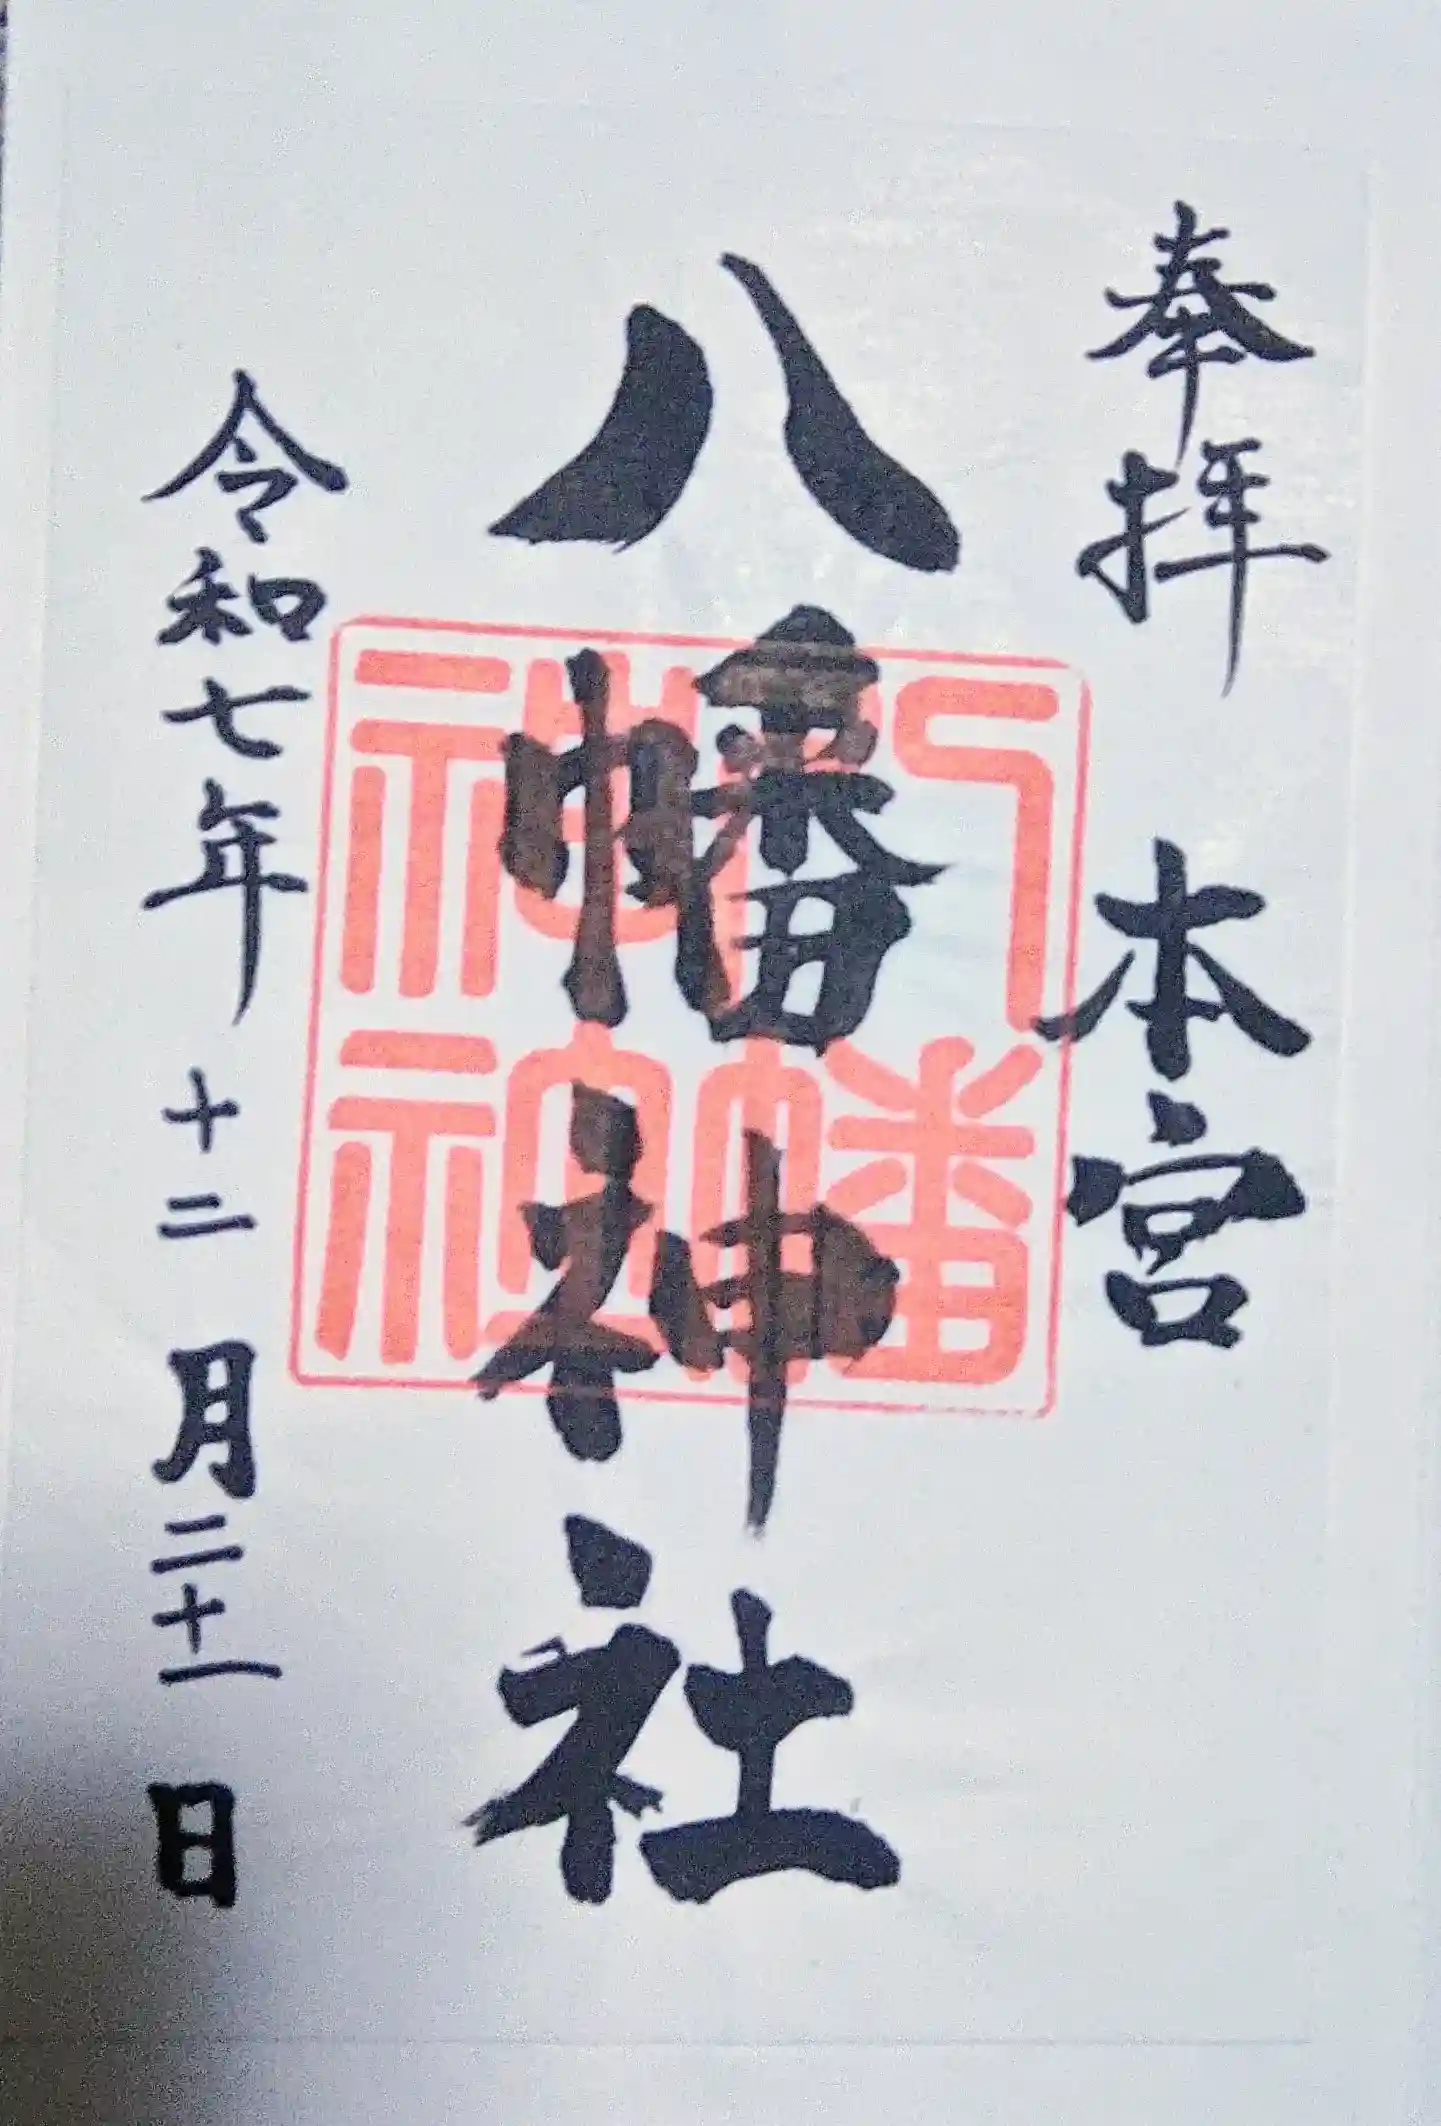 奉拝 本宮
八幡神社
八幡
神社
令和七年十二月二十一日